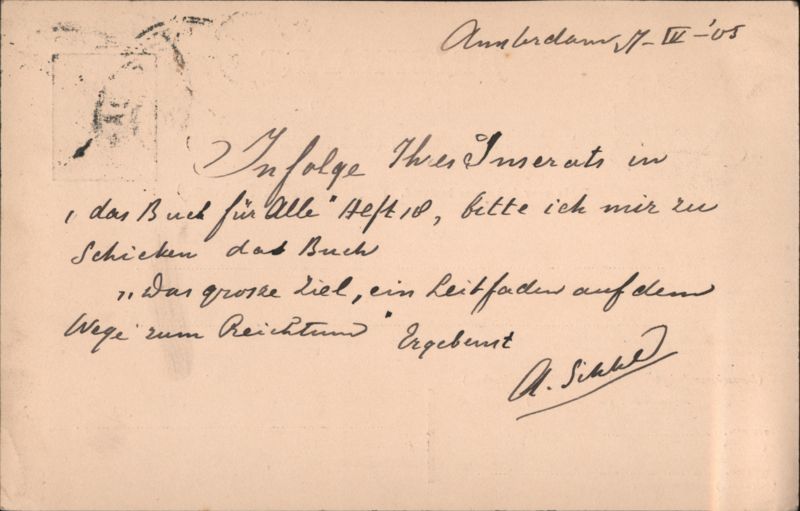 Amsterdam, 7-IV-'05
Infolge Ihres Inserats in
„das Buch für Alle" Heft 18, bitte ich mir zu
schicken das Buch
„Das grosze Ziel, ein Leitfaden auf dem
Wege zum Reichtum" Ergebenst
A. Sikkel